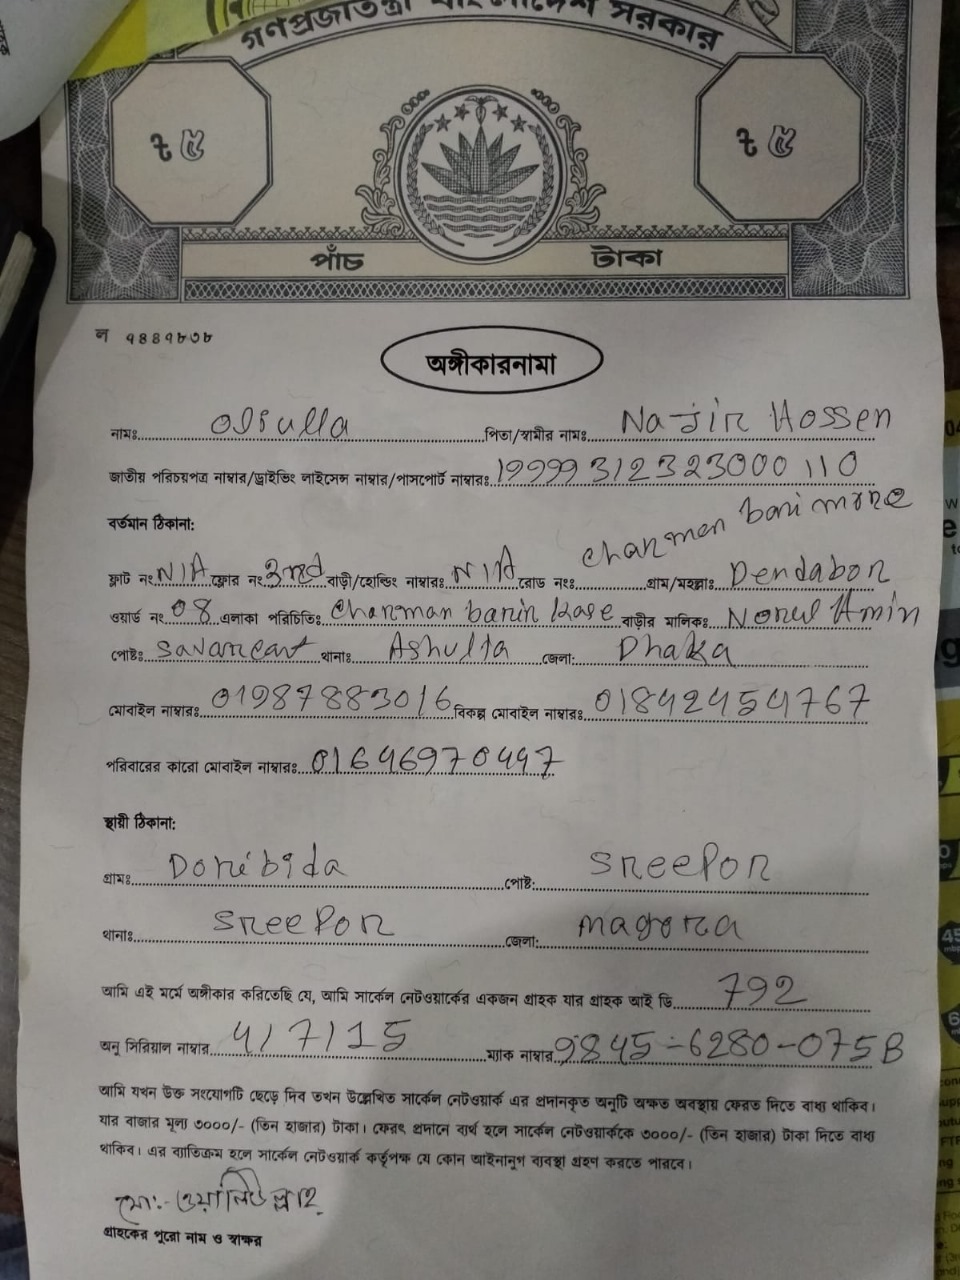 গণপ্রজাতন্ত্রী বাংলাদেশ সরকার
৳ ৫ ৳ ৫
পাঁচ টাকা
ল ৭৪৪৭৮৩৮
অঙ্গীকারনামা
নামঃ oliulla পিতা/স্বামীর নামঃ Najir Hossen
জাতীয় পরিচয়পত্র নাম্বার/ড্রাইভিং লাইসেন্স নাম্বার/পাসপোর্ট নাম্বারঃ 19999312323000110
বর্তমান ঠিকানা: charman bari more
ফ্লাট নং N/A ফ্লোর নং 3nd বাড়ী/হোল্ডিং নাম্বারঃ N/A রোড নংঃ গ্রাম/মহল্লাঃ Dendabor
ওয়ার্ড নং 08 এলাকা পরিচিতিঃ charman barir kase বাড়ীর মালিকঃ Norul Amin
পোষ্টঃ savarcant থানাঃ Ashulia জেলা: Dhaka
মোবাইল নাম্বারঃ 01987883016 বিকল্প মোবাইল নাম্বারঃ 01842454767
পরিবারের কারো মোবাইল নাম্বারঃ 01646970447
স্থায়ী ঠিকানা:
গ্রামঃ পোষ্ট: sreepor
থানাঃ sreepor জেলা: magora
আমি এই মর্মে অঙ্গীকার করিতেছি যে, আমি সার্কেল নেটওয়ার্কের একজন গ্রাহক যার গ্রাহক আই ডি 792
অনু সিরিয়াল নাম্বার 4/7/15 ম্যাক নাম্বার 9845-6280-075B
আমি যখন উক্ত সংযোগটি ছেড়ে দিব তখন উল্লেখিত সার্কেল নেটওয়ার্ক এর প্রদানকৃত অনুটি অক্ষত অবস্থায় ফেরত দিতে বাধ্য থাকিব।
যার বাজার মূল্য ৩০০০/- (তিন হাজার) টাকা। ফেরৎ প্রদানে ব্যর্থ হলে সার্কেল নেটওয়ার্ককে ৩০০০/- (তিন হাজার) টাকা দিতে বাধ্য
থাকিব। এর ব্যতিক্রম হলে সার্কেল নেটওয়ার্ক কর্তৃপক্ষ যে কোন আইনানুগ ব্যবস্থা গ্রহণ করতে পারবে।
মো:- ওয়ালিউল্লাহ
গ্রাহকের পুরো নাম ও স্বাক্ষর